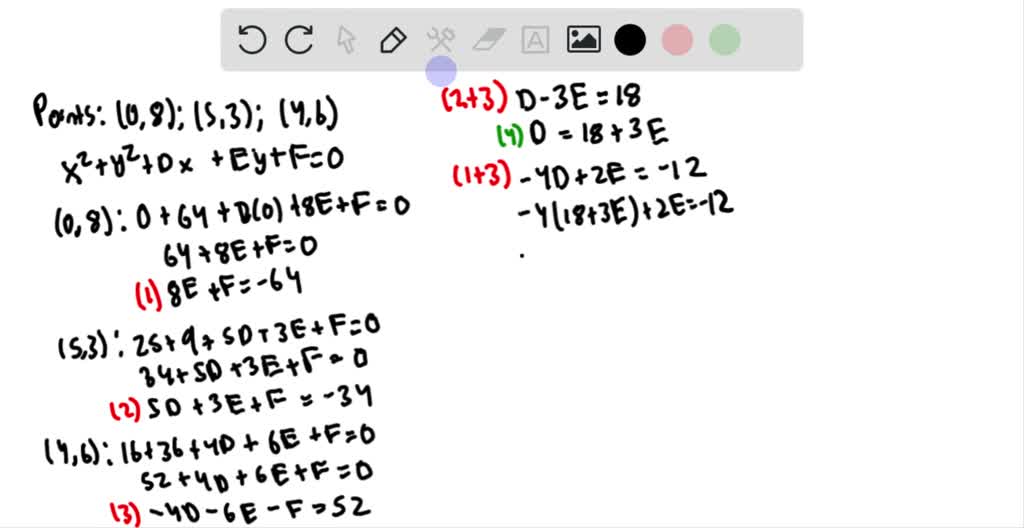 Points: (0,8); (5,3); (4,6)
x²+y²+Dx +Ey+F=0
(0,8): 0+64+D(0)+8E+F=0
64+8E+F=0
(1) 8E+F=-64
(5,3): 25+9+5D+3E+F=0
34+5D+3E+F=0
(2) 5D+3E+F=-34
(4,6): 16+36+4D+6E+F=0
52+4D+6E+F=0
(3) -4D-6E-F=52
(2+3) D-3E=18
(4) D=18+3E
(1+3) -4D+2E=-12
-4(18+3E)+2E=-12